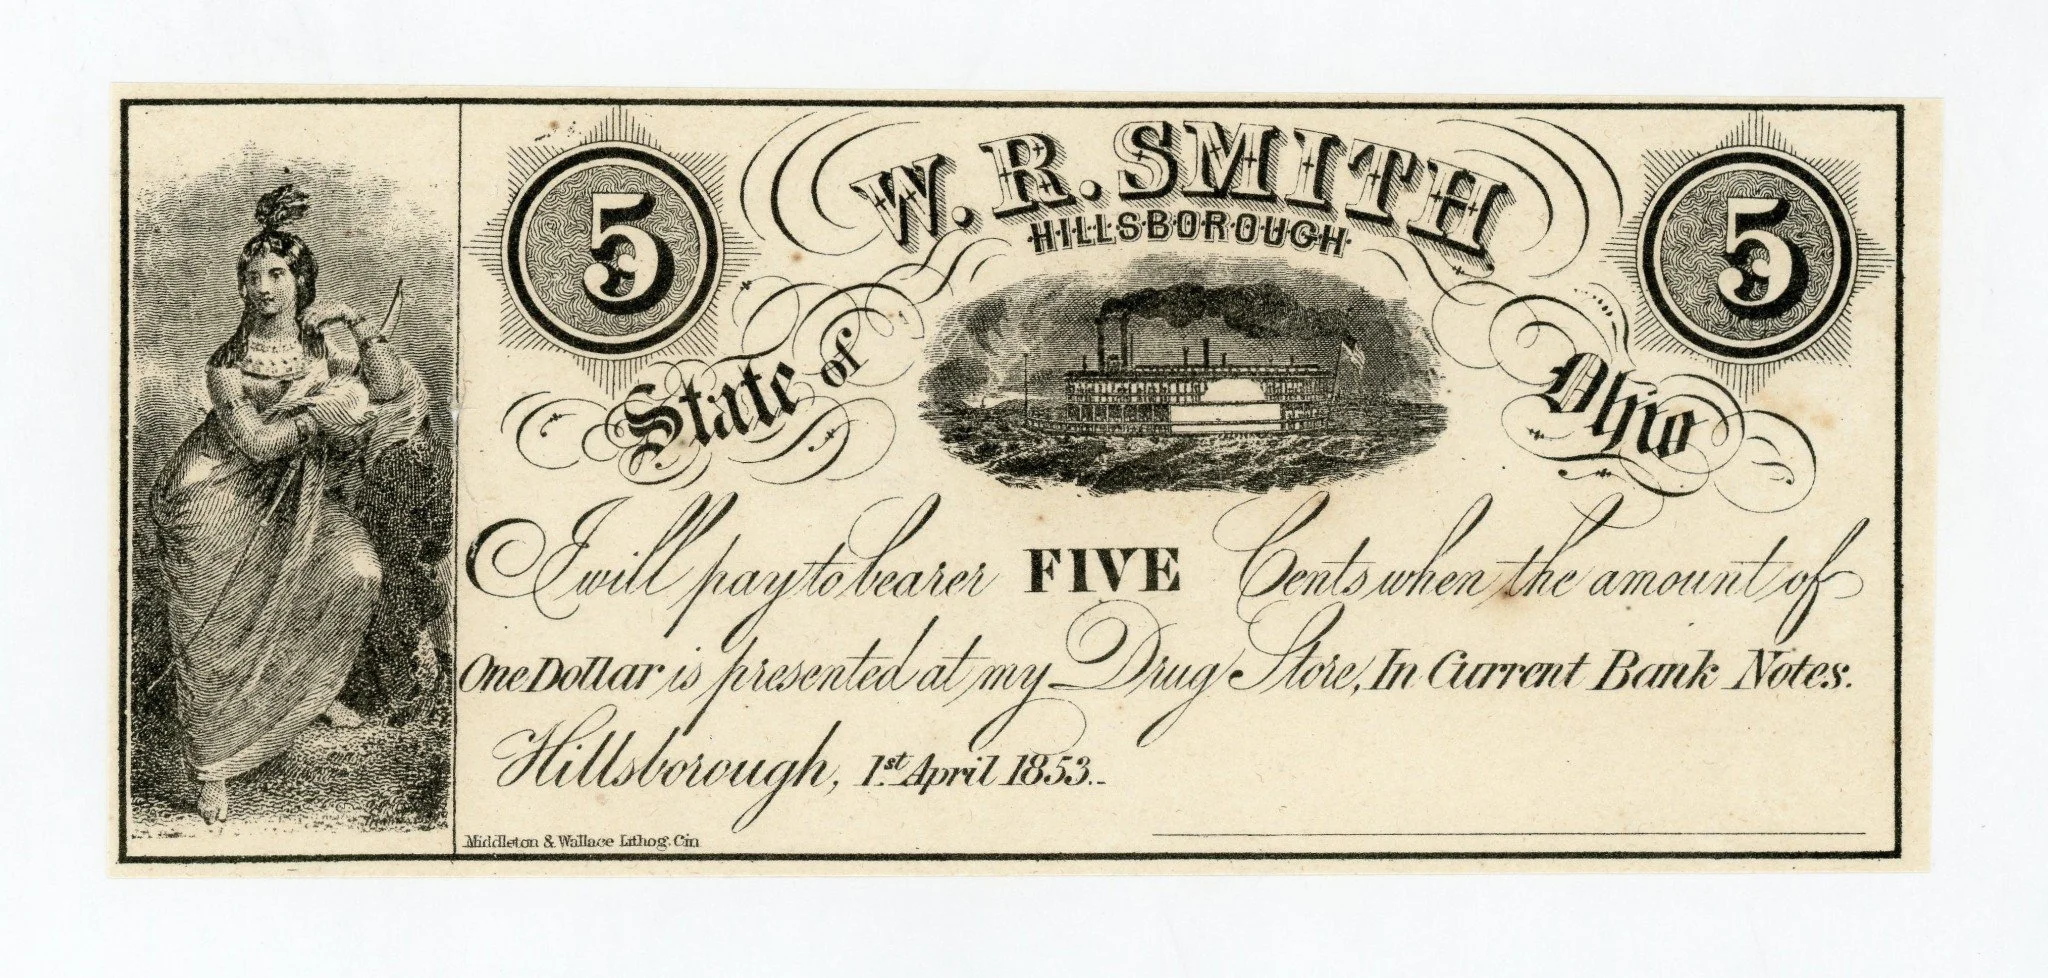 5 W. R. SMITH 5
·HILLSBOROUGH·
State of Ohio
I will pay to bearer FIVE Cents when the amount of
One Dollar is presented at my Drug Store, In Current Bank Notes.
Hillsborough, 1st April 1853.
Middleton & Wallace Lithog. Cin